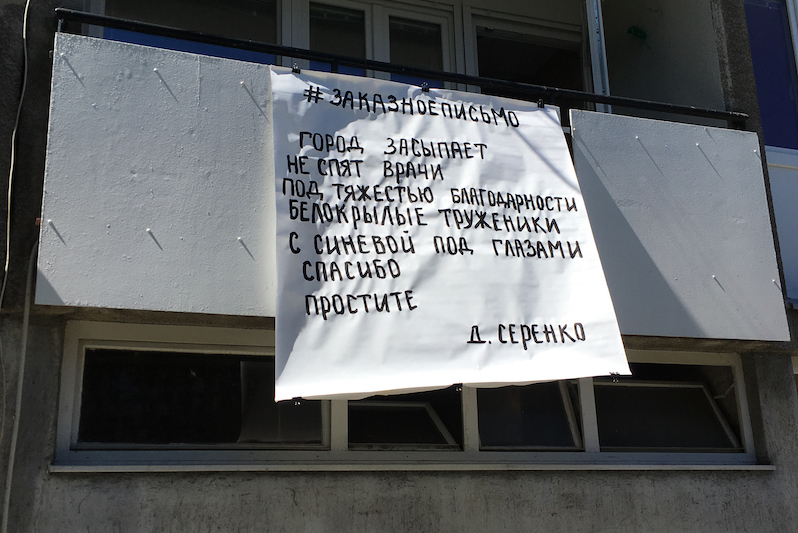 #ЗАКАЗНОЕПИСЬМО
ГОРОД ЗАСЫПАЕТ
НЕ СПЯТ ВРАЧИ
ПОД ТЯЖЕСТЬЮ БЛАГОДАРНОСТИ
БЕЛОКРЫЛЫЕ ТРУЖЕНИКИ
С СИНЕВОЙ ПОД ГЛАЗАМИ
СПАСИБО
ПРОСТИТЕ
Д. СЕРЕНКО